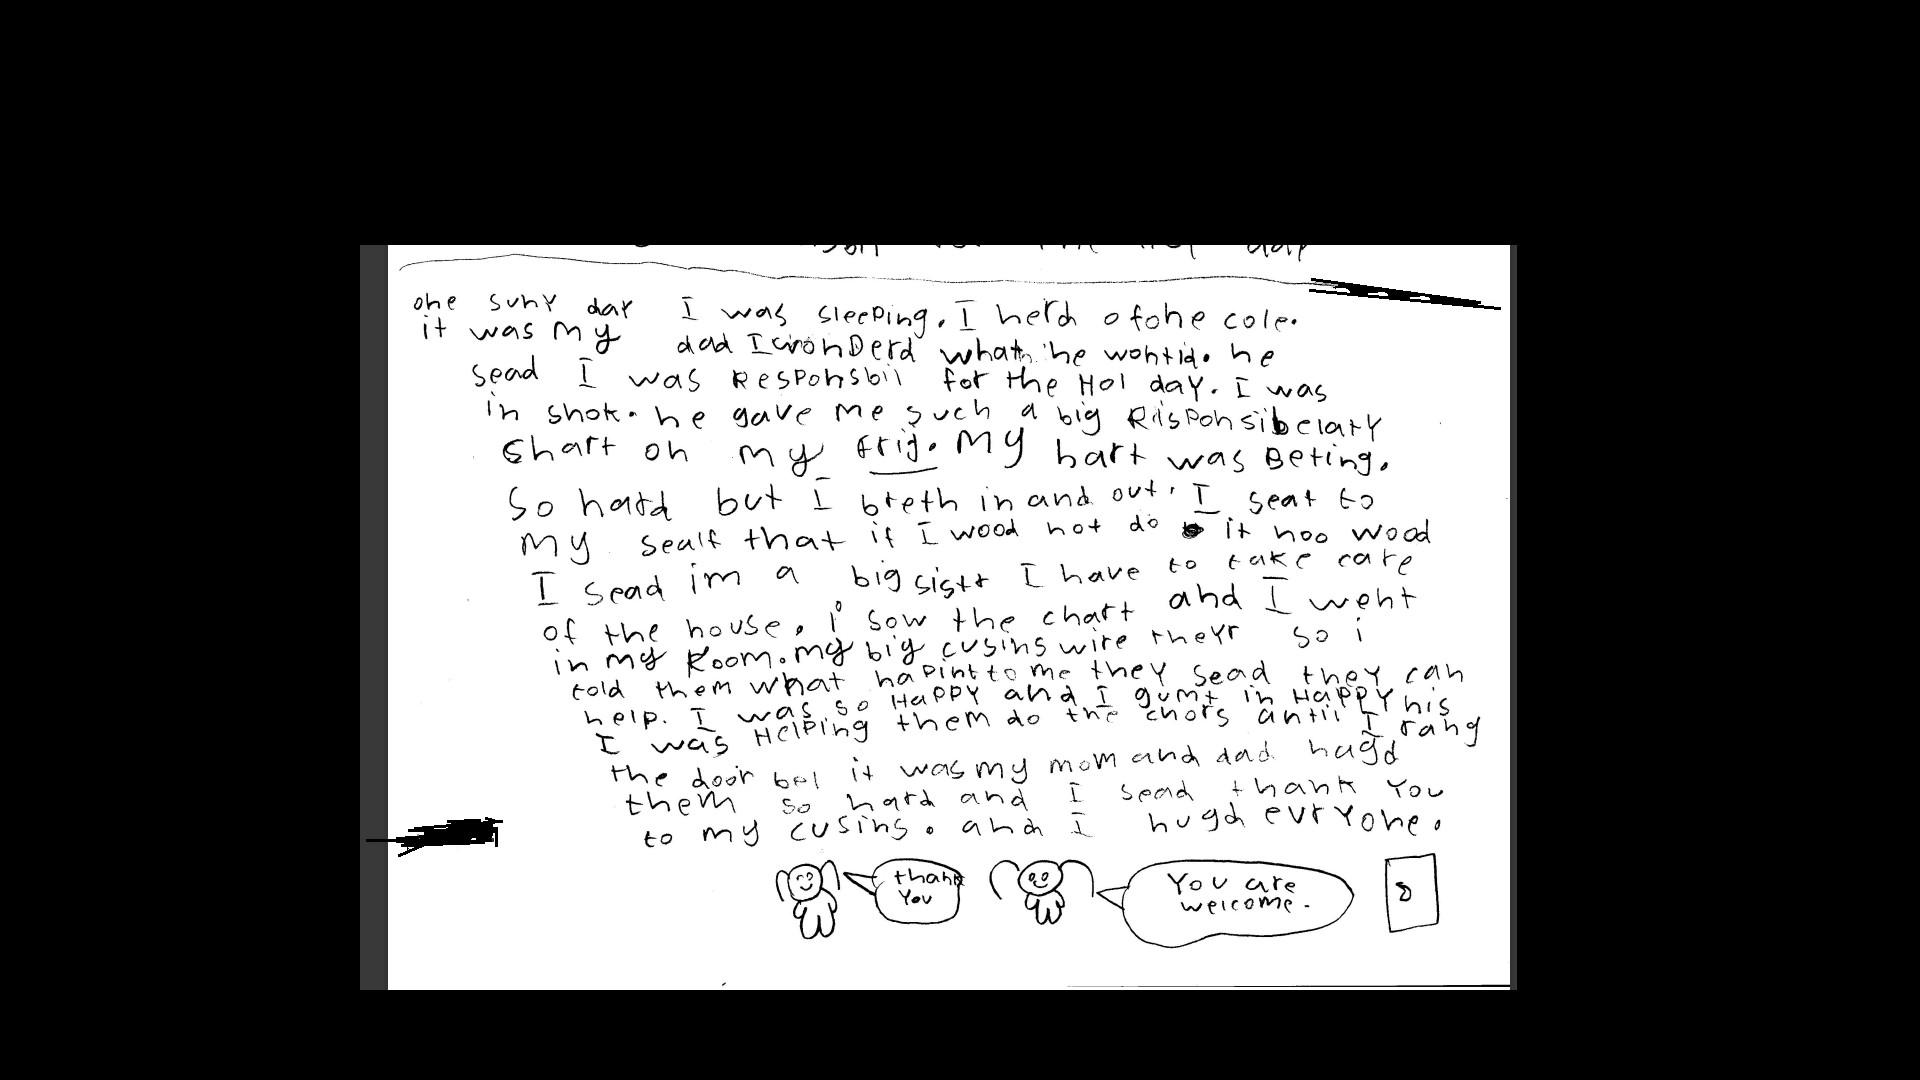 for the Hol day
one suny day I was sleeping. I herd a fone cole.
it was my dad I wonderd what he wontid. he
sead I was Responsbil for the Hol day. I was
in shok. he gave me such a big Risponsibelaty
chart on my frij. My hart was Beting.
So hard but I breth in and out. I seat to
my sealf that if I wood not do it hoo wood
I sead im a big sistr I have to take care
of the house. i sow the chart and I went
in my Room. my big cusins wire theyr so i
told them what hapint to me they sead they can
help. I was so Happy and I gumt in Happyhis
I was Helping them do the chors antil I rang
the door bel it was my mom and dad hugd
them so hard and I sead thank you
to my cusins. and I hugd evryone.
thank
You
You are
welcome.